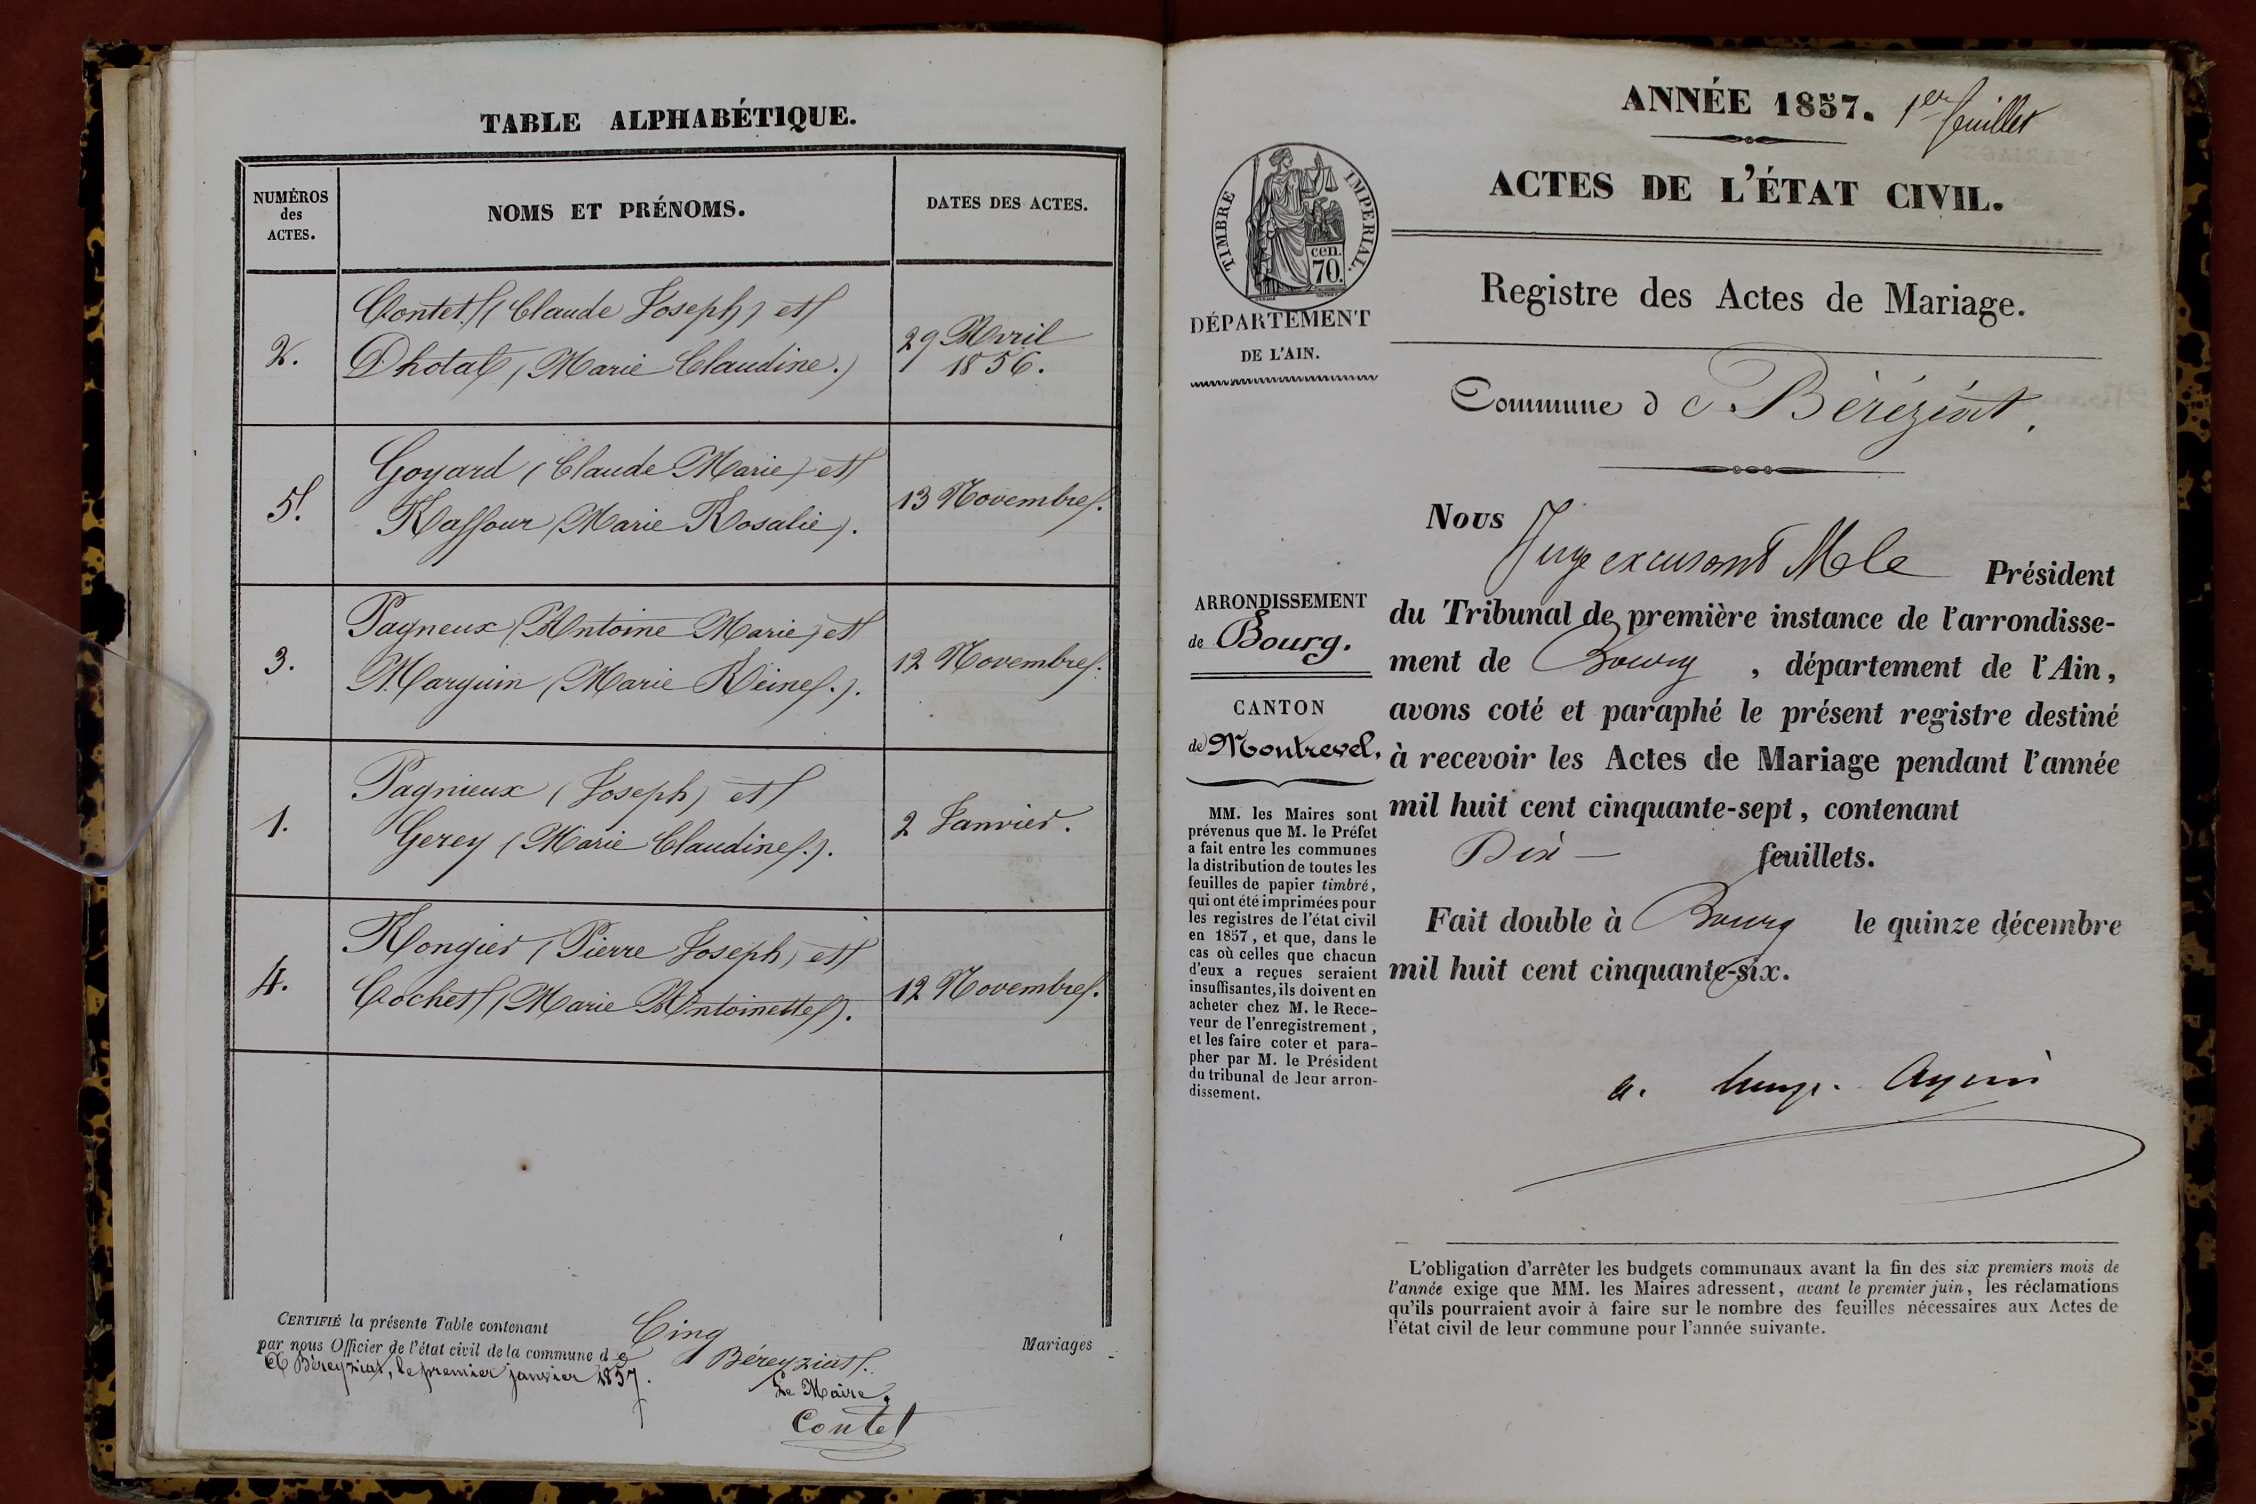 TABLE ALPHABÉTIQUE.
NUMÉROS
des
ACTES.
NOMS ET PRÉNOMS.
DATES DES ACTES.
2.
Contet (Claude Joseph) et
Dhotal (Marie Claudine.)
29 Avril
1856.
5.
Goyard (Claude Marie) et
Raffour (Marie Rosalie).
13 Novembre.
3.
Pagneux (Antoine Marie) et
Marguin (Marie Reine.).
12 Novembre.
1.
Pagnieux (Joseph) et
Gerey (Marie Claudine.).
2 Janvier.
4.
Rongier (Pierre Joseph) et
Cochet (Marie Antoinette).
12 Novembre.
CERTIFIÉ la présente Table contenant Cinq Mariages
par nous Officier de l'état civil de la commune de Béreyziat.
A Béreyziat, le premier janvier 1857.
Le Maire,
Contet
ANNÉE 1857. 1er feuillet
ACTES DE L'ÉTAT CIVIL.
TIMBRE IMPERIAL.
cen.
70.
DÉPARTEMENT
DE L'AIN.
Registre des Actes de Mariage.
Commune de Béréziat.
ARRONDISSEMENT
de Bourg.
CANTON
de Montrevel.
MM. les Maires sont
prévenus que M. le Préfet
a fait entre les communes
la distribution de toutes les
feuilles de papier timbré,
qui ont été imprimées pour
les registres de l'état civil
en 1857, et que, dans le
cas où celles que chacun
d'eux a reçues seraient
insuffisantes, ils doivent en
acheter chez M. le Rece-
veur de l'enregistrement,
et les faire coter et para-
pher par M. le Président
du tribunal de leur arron-
dissement.
Nous Juge Président
du Tribunal de première instance de l'arrondisse-
ment de Bourg, département de l'Ain,
avons coté et paraphé le présent registre destiné
à recevoir les Actes de Mariage pendant l'année
mil huit cent cinquante-sept, contenant
Dix feuillets.
Fait double à Bourg le quinze décembre
mil huit cent cinquante-six.
L'obligation d'arrêter les budgets communaux avant la fin des six premiers mois de
l'année exige que MM. les Maires adressent, avant le premier juin, les réclamations
qu'ils pourraient avoir à faire sur le nombre des feuilles nécessaires aux Actes de
l'état civil de leur commune pour l'année suivante.